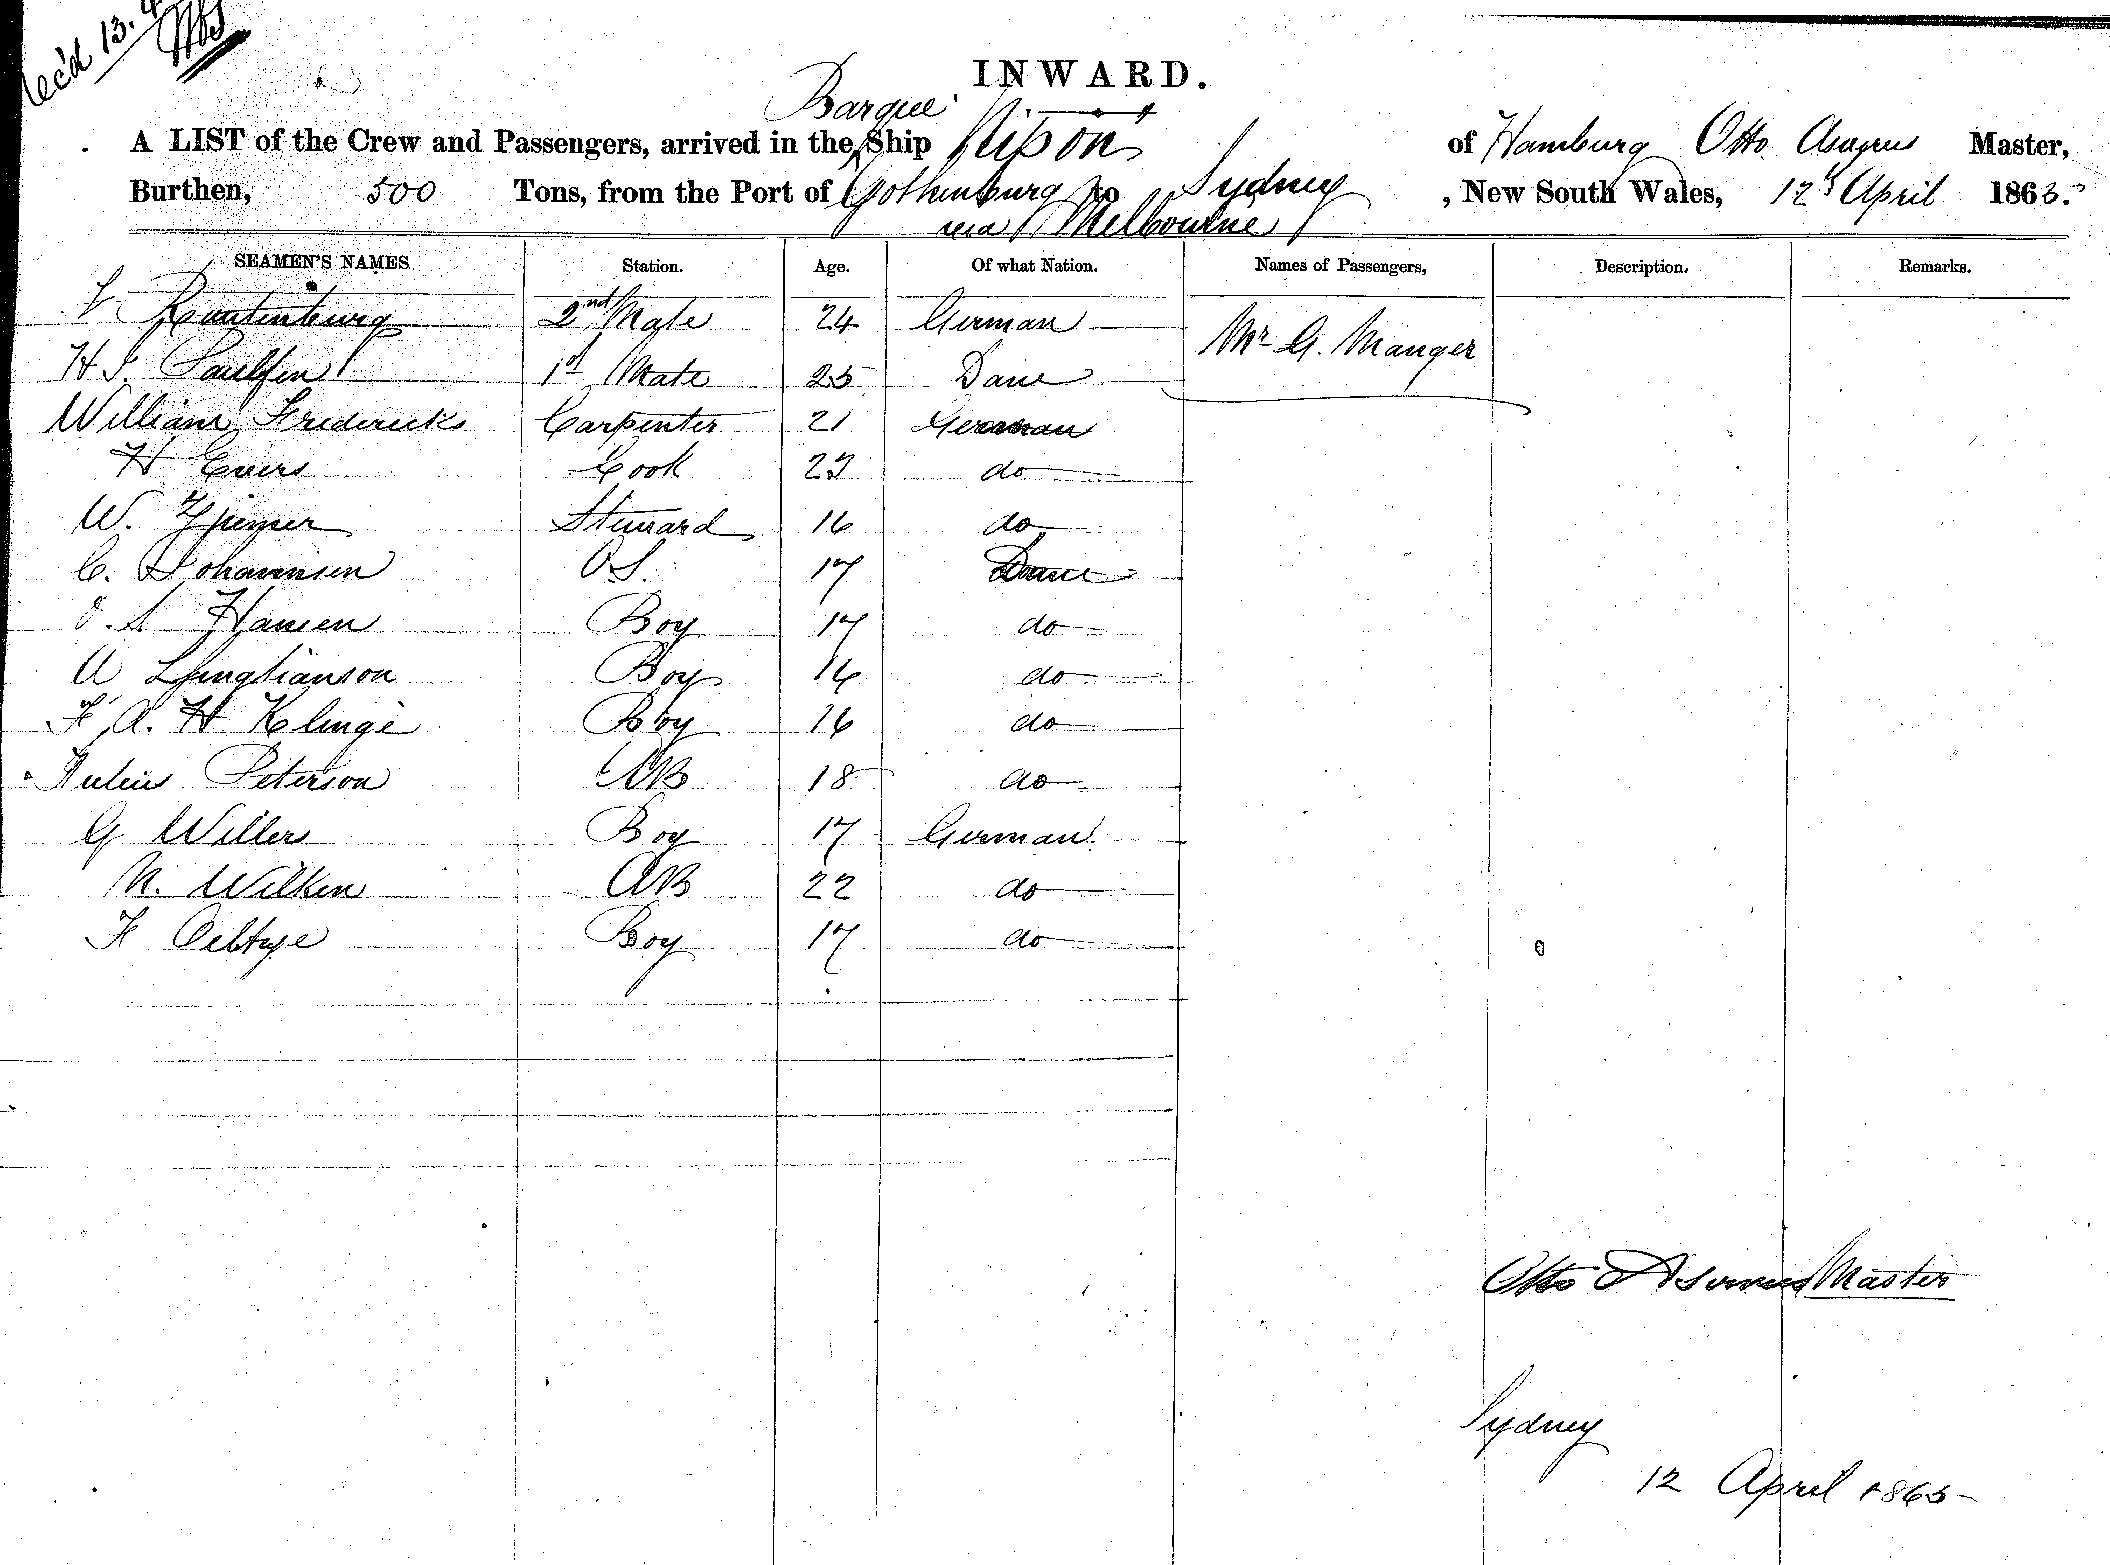 Rec'd 13.4
INWARD.
Barque
A LIST of the Crew and Passengers, arrived in the Ship Nipon of Hamburg Otto Master,
Burthen, 500 Tons, from the Port of Gothenburg to Sydney, New South Wales, 12th April 1865.
via Melbourne
SEAMEN'S NAMES Station. Age. Of what Nation. Names of Passengers, Description. Remarks.
2nd Mate 24 German Mr G. Manger
H 1st Mate 25 Dane
William Fredericks Carpenter 21 German
H Evers Cook 23 do
W. Steward 16 do
C. Johannsen O.S. 17 Dane
Hansen Boy 17 do
A Boy 16 do
F. A. H Klinge Boy 16 do
Julius Peterson AB 18 do
G Willers Boy 17 German
N. Wilken AB 22 do
F Boy 17 do
Otto Master
Sydney
12 April 1865